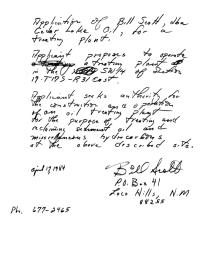 Application of Bill Scott, dba
Cedar Lake Oil, for a
treating plant.
Applicant proposes to operate
a treating plant
in the SW/4 of Section
T-19S-R31 East
Applicant seeks authority for
the construction and operation
of an oil treating plant
for the purpose of treating and
reclaiming sediment oil and
miscellaneous hydrocarbons
at the above described site.
april 17, 1984
Bill Scott
P.O. Box 41
Loco Hills, N.M
88255
Ph. 677-2465